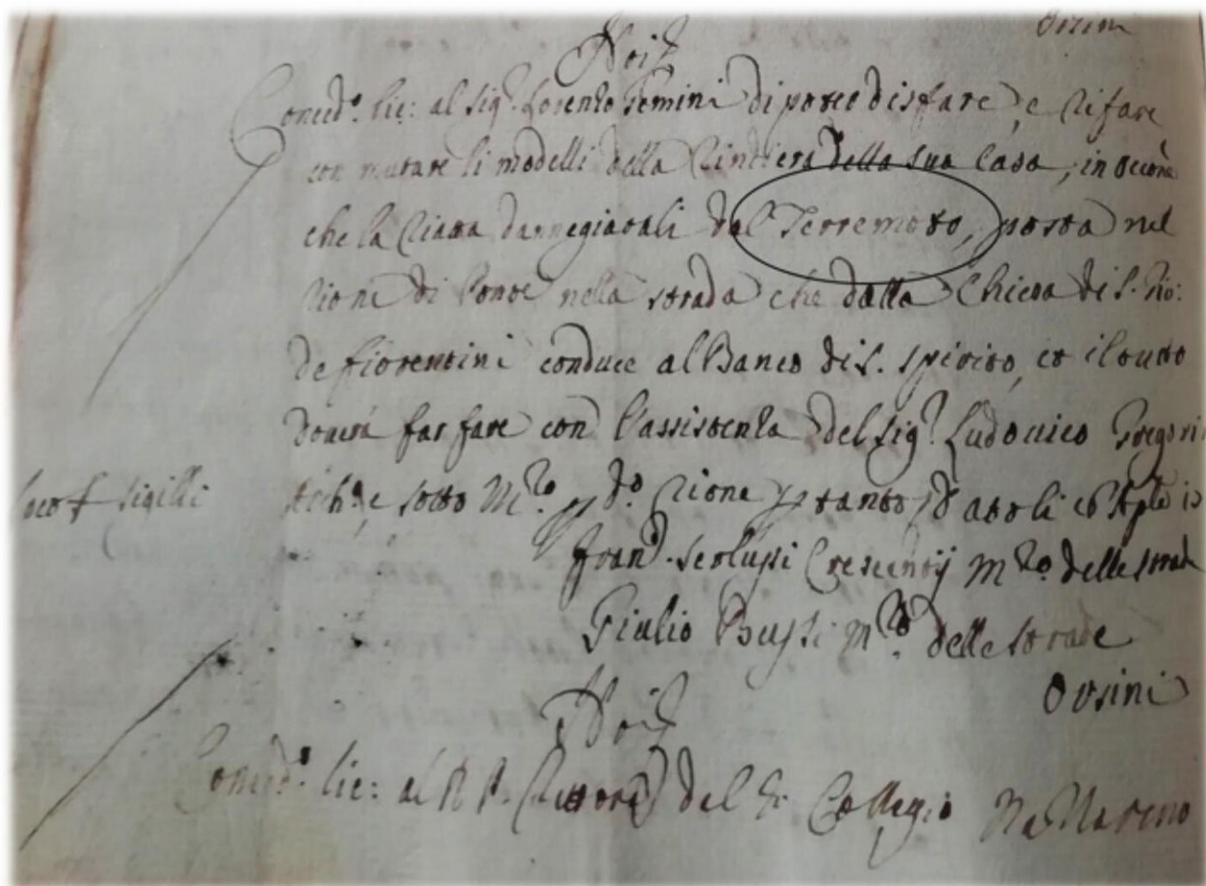 Orsini
Noi
Conced.º lic: al Sig.r Lorenzo Temini di poter disfare, e rifare
con mutare li modelli della Ringhiera della sua Casa, in occone
che la dannegiatali dal Terremoto, posta nel
Rione di Ponte nella strada che dalla Chiesa di S. Gio:
de fiorentini conduce al Banco di S. Spirito, et il tutto
dovrà far fare con l'assistenza del Sig.r Ludovico Gregorini
loco + sigilli
Arch.º e sotto M.ro d.º Rione
Fran.º Serlupi Crescentij M.ro delle strade
Giulio Bussi M.ro delle strade
Orsini
Noi
Conced.º lic: al R. P. Rettore del Collegio Nazareno